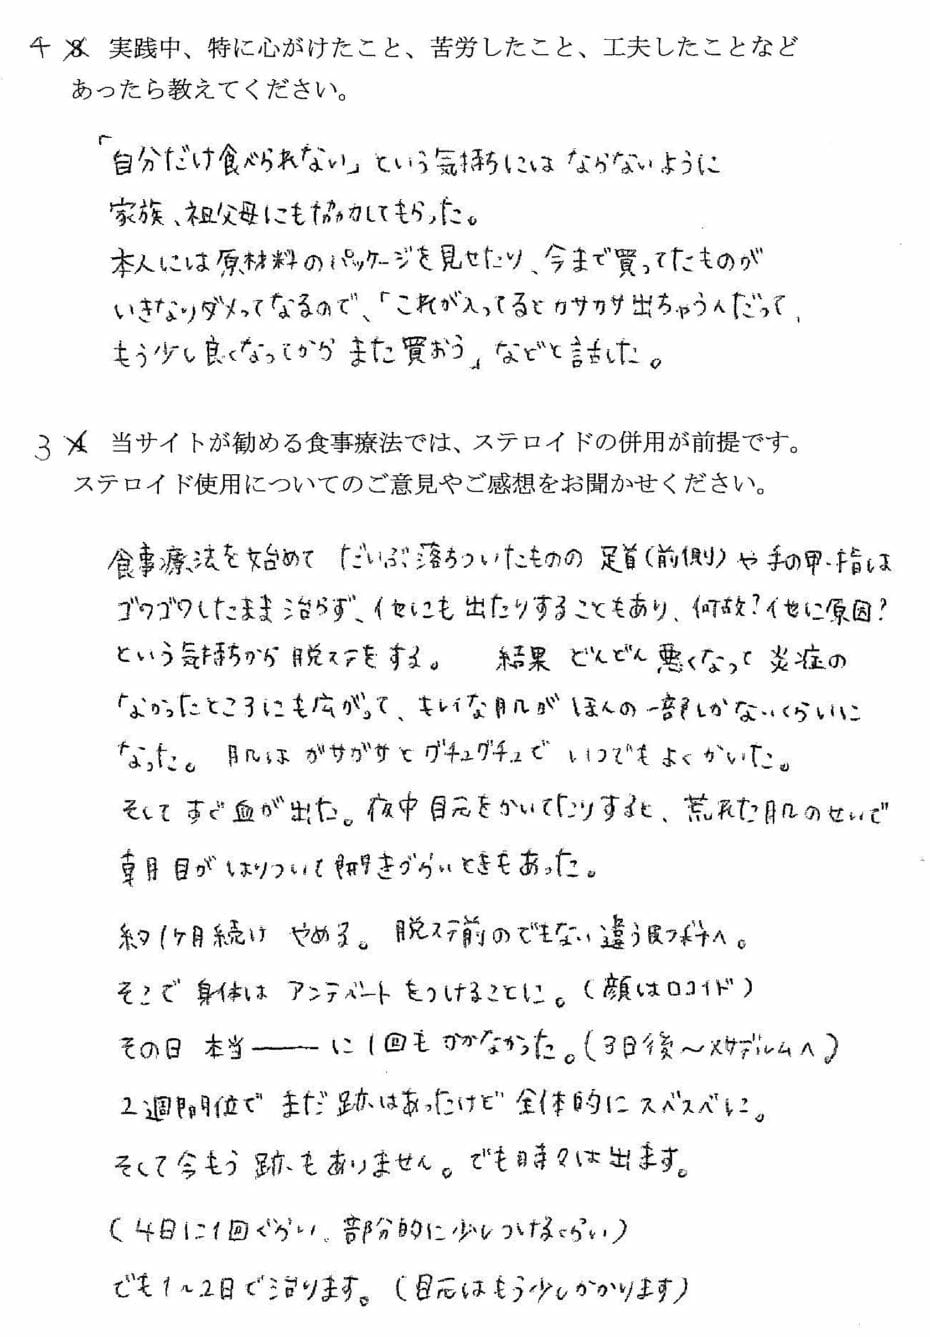 4 8 実践中、特に心がけたこと、苦労したこと、工夫したことなど
あったら教えてください。
「自分だけ食べられない」という気持ちにはならないように
家族、祖父母にも協力してもらった。
本人には原材料のパッケージを見せたり、今まで買ってたものが
いきなりダメってなるので、「これが入ってるとカサカサ出ちゃうんだって、
もう少し良くなってからまた買おう」などと話した。
3 4 当サイトが勧める食事療法では、ステロイドの併用が前提です。
ステロイド使用についてのご意見やご感想をお聞かせください。
食事療法を始めて だいぶ落ちついたものの 足首(前側)や手の甲・指は
ゴワゴワしたまま治らず、他にも出たりすることもあり、何故?他に原因?
という気持ちから脱ステをする。 結果 どんどん悪くなって炎症の
なかったところにも広がって、キレイな肌がほんの一部しかないくらいに
なった。肌はガサガサとグチュグチュでいつでもよくかいた。
そしてすぐ血が出た。夜中目元をかいてたりすると、荒れた肌のせいで
朝目がはりついて開きづらいときもあった。
約1ケ月続け やめる。脱ステ前のでもない違う皮フ科へ。
そこで身体は アンテベートをつけることに。(顔はロコイド)
その日 本当――に1回もかかなかった。(3日後〜メサデルムへ)
2週間位で まだ跡はあったけど 全体的にスベスベに。
そして今もう跡もありません。でも時々は出ます。
(4日に1回ぐらい、部分的に少しつけるくらい)
でも1〜2日で治ります。(目元はもう少しかかります)